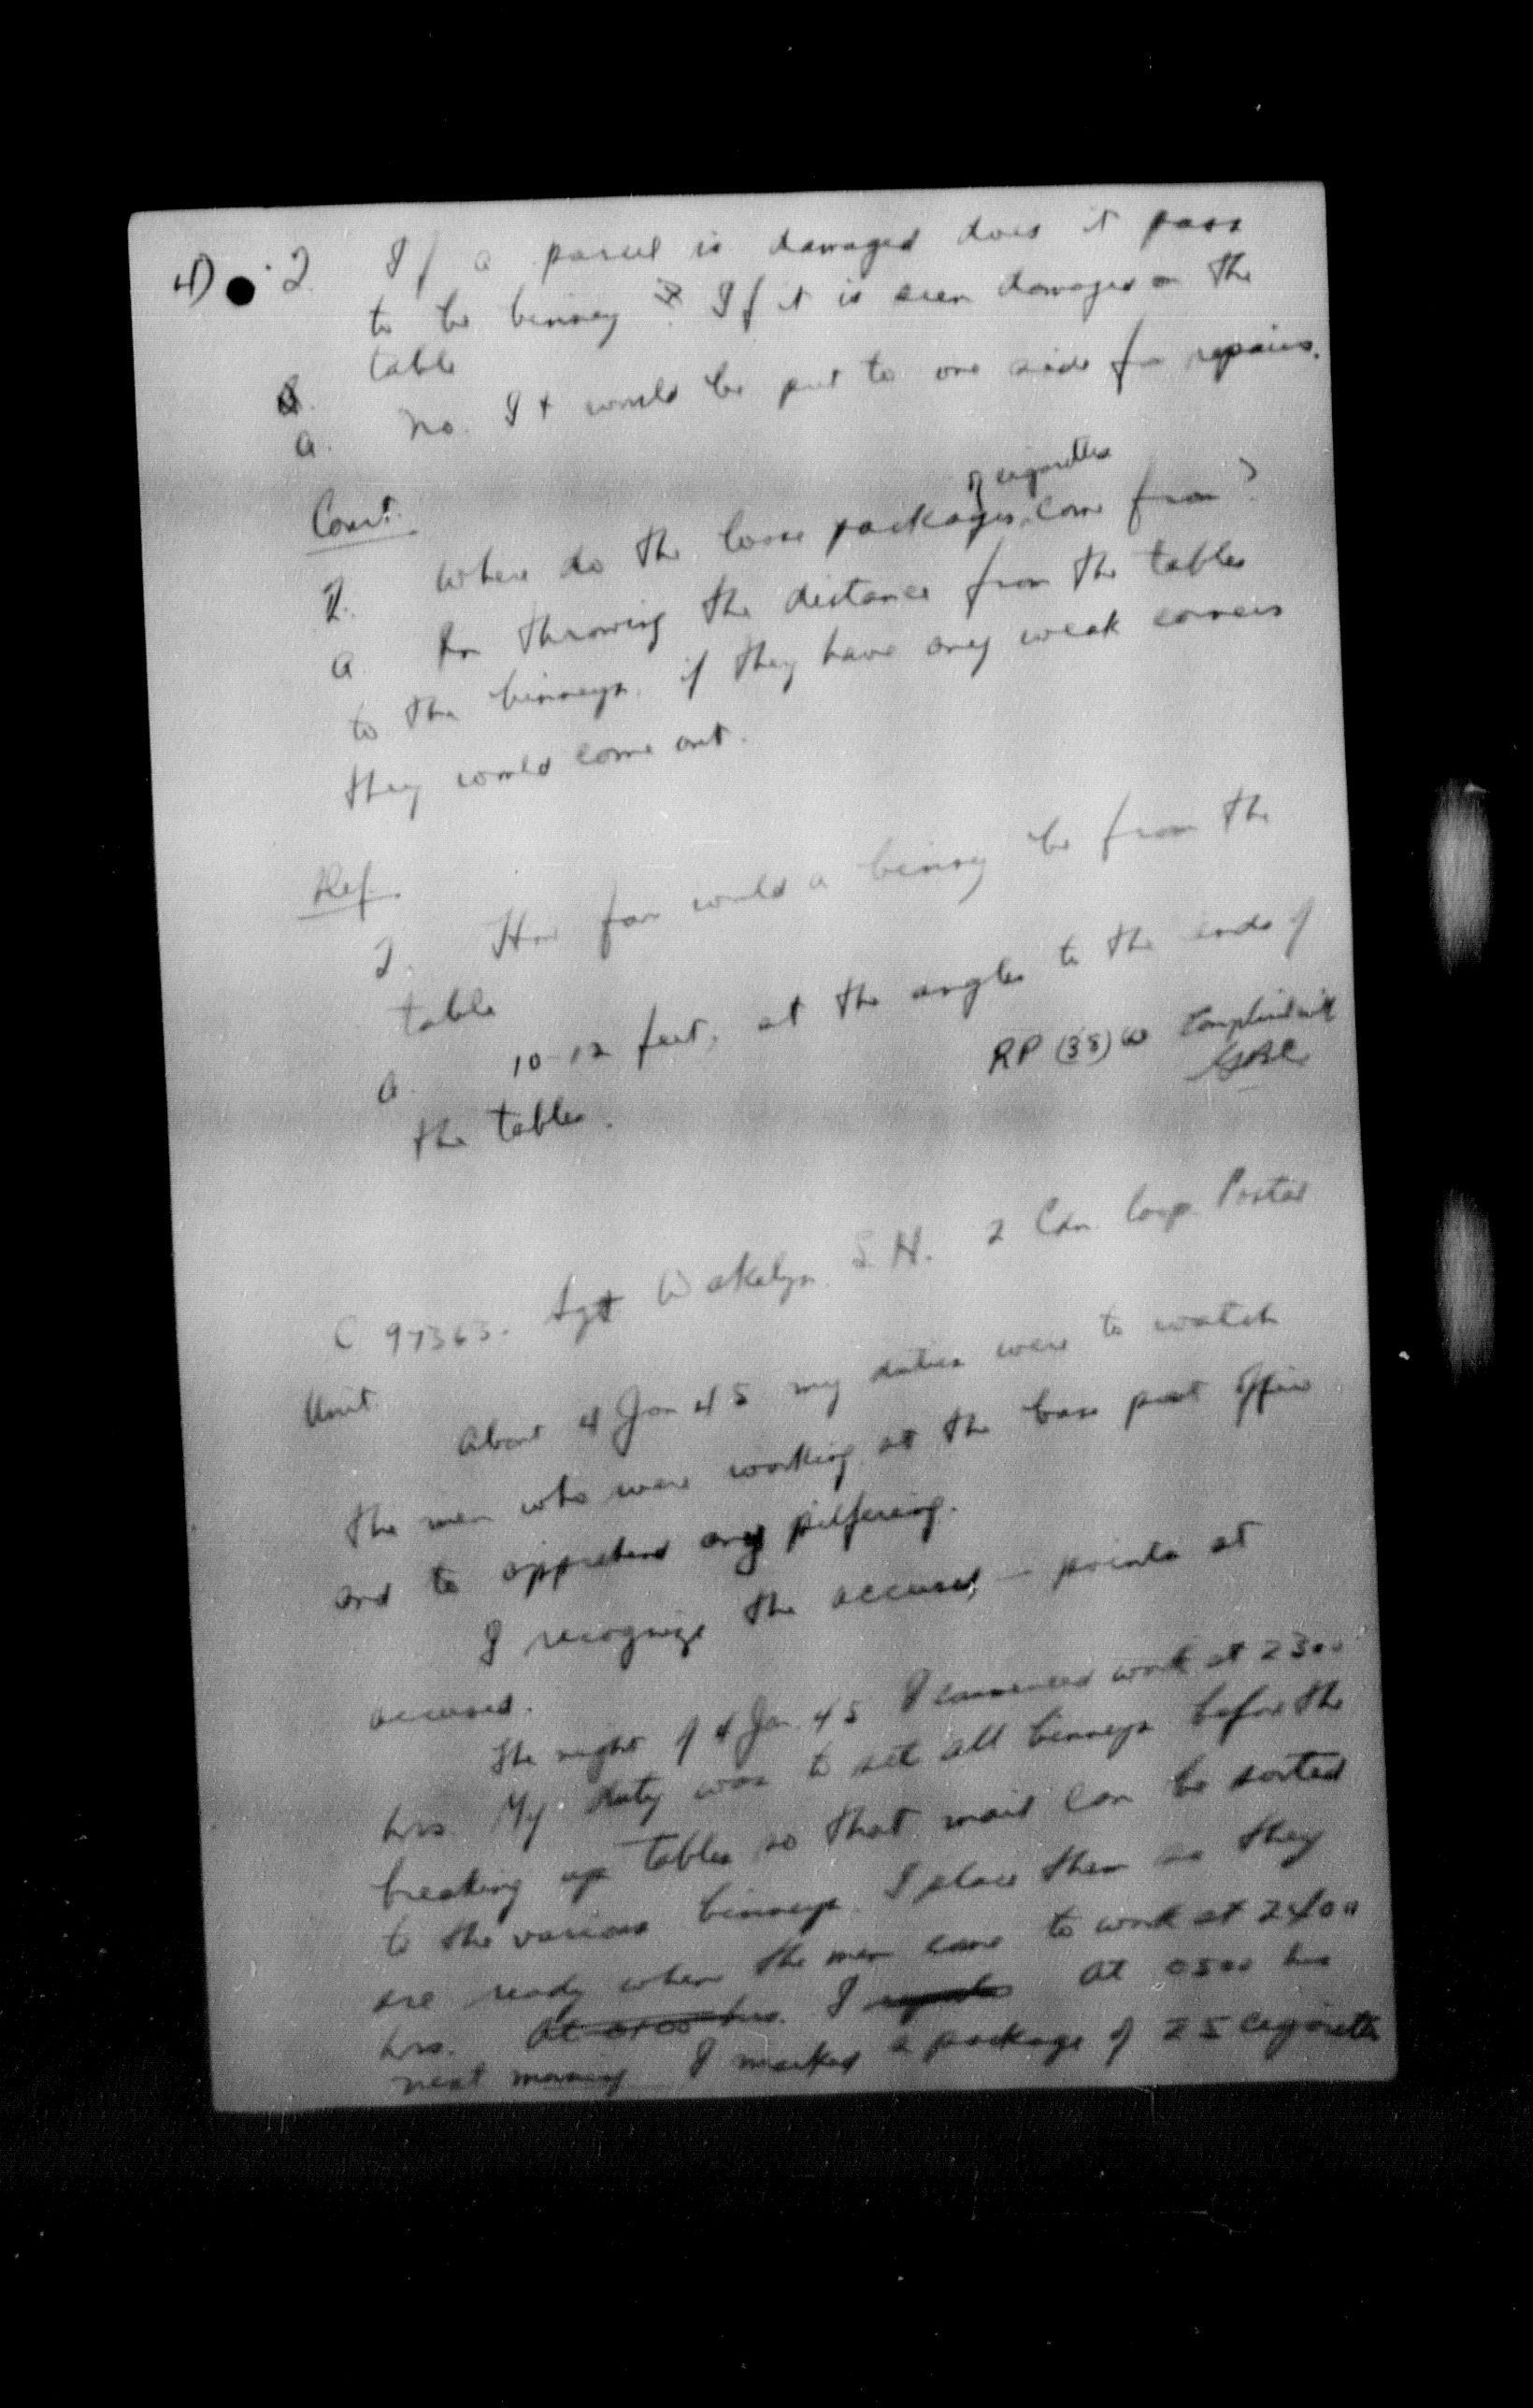 4) Q. If a parcel is damaged does it pass
to be binney? If it is seen damaged on the
table
a. No. It would be put to one side for repairs.
Court.
Q. Where do the loose packages of cigarettes come from?
a. In throwing the distance from the tables
to the binneys, if they have any weak corners
they would come out.
Ref.
Q. How far would a binney be from the
table
a. 10-12 feet, at the angles to the ends of
the tables.
RP (35) (a) Complied with
C 97363. Sgt Wakelyn S.H. 2 Cdn. Corp. Postal
Unit
About 4 Jan 45 my duties were to watch
the men who were working at the base post office
and to apprehend any pilfering.
I recognize the accused, - points at
accused.
The night of 4 Jan. 45 I commenced work at 2300
hrs. My duty was to set all binneys before the
breaking up tables so that mail can be sorted
to the various binneys. I place them so they
are ready when the men come to work at 2400
hrs. At 0100 hrs. I at 0500 hrs
next morning I marked a package of 25 cigarettes